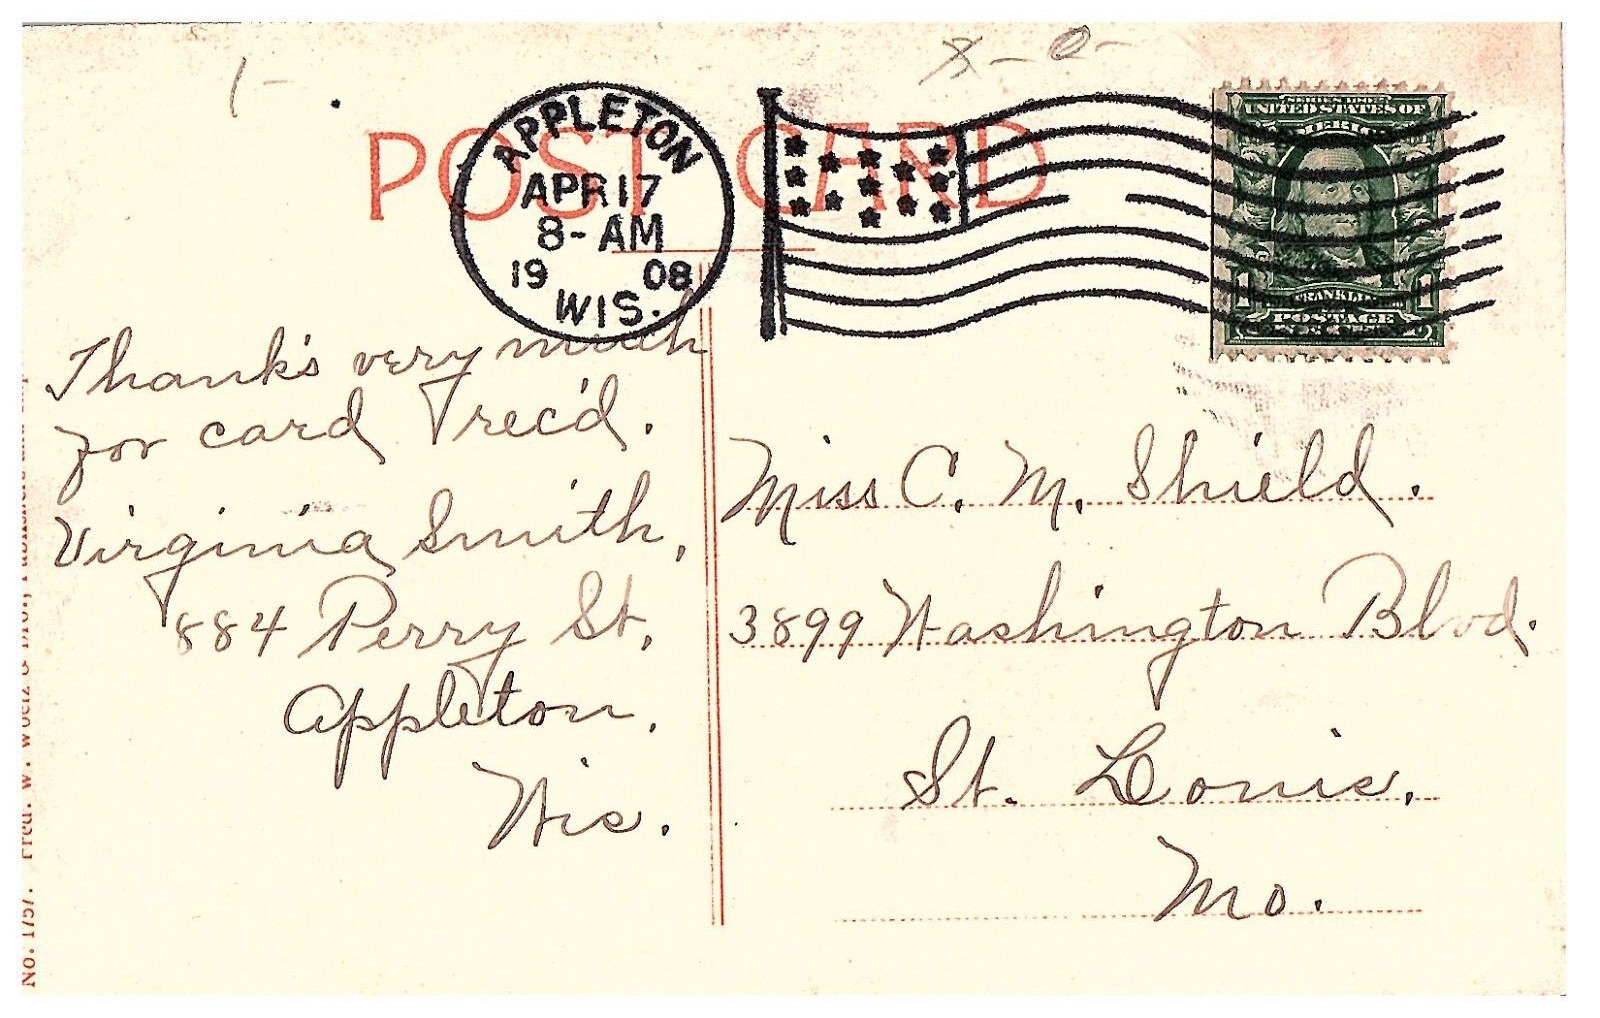 1-
8-0-
POST CARD
APPLETON
APR 17
8-AM
1908
WIS.
UNITED STATES OF
FRANKLIN
1 1
POSTAGE
Thank's very much
for card rec'd.
Virginia Smith,
884 Perry St,
Appleton.
Wis.
Miss C. M. Shield.
3899 Washington Blvd.
St. Louis,
Mo.
No. 1757. Fred. W. Woelz &